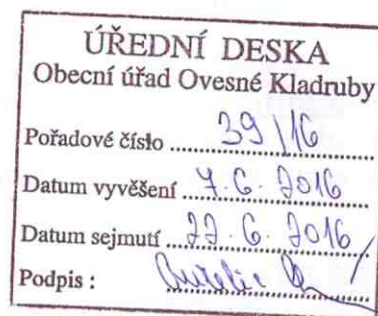 ÚŘEDNÍ DESKA
Obecní úřad Ovesné Kladruby
Pořadové číslo 39/16
Datum vyvěšení 7.6.2016
Datum sejmutí 22.6.2016
Podpis :